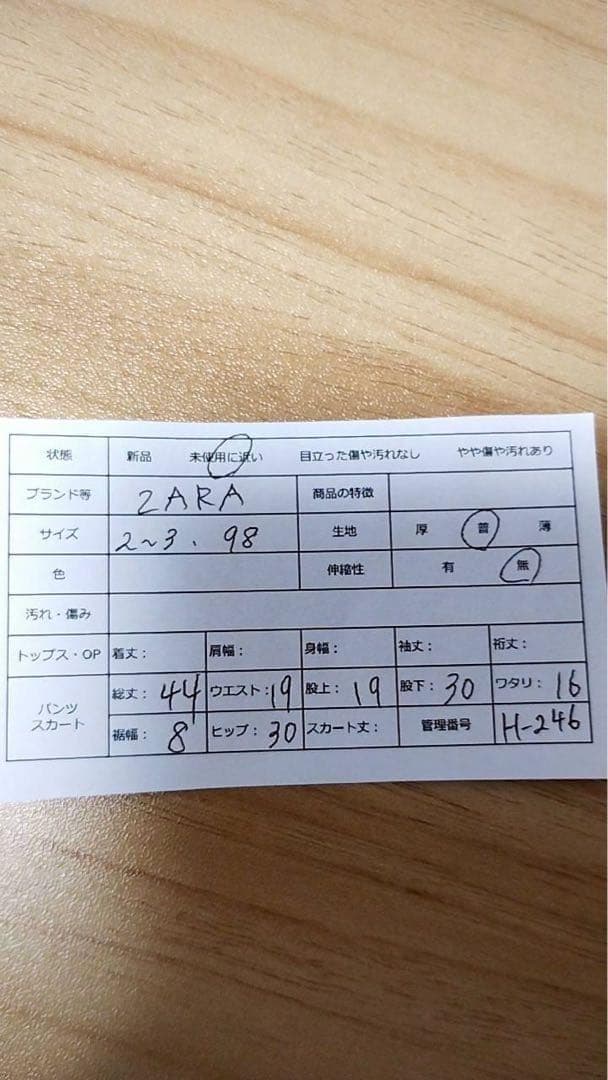 状態 新品 未使用に近い 目立った傷や汚れなし やや傷や汚れあり
ブランド等 ZARA 商品の特徴
サイズ 2~3、98 生地 厚 普 薄
色 伸縮性 有 無
汚れ・傷み
トップス・OP 着丈： 肩幅： 身幅： 袖丈： 裄丈：
パンツ スカート 総丈：44 ウエスト：19 股上：19 股下：30 ワタリ：16
裾幅：8 ヒップ：30 スカート丈： 管理番号 H-246